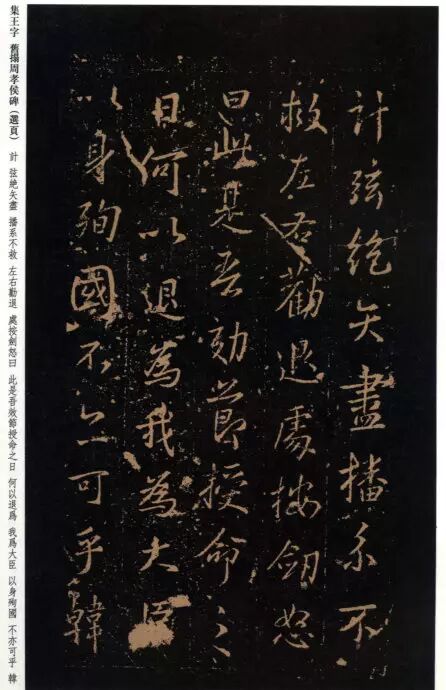 集王字 舊搨周孝侯碑（選頁） 計 弦絶矢盡 播系不救 左右勸退 處按劍怒曰 此是吾效節授命之日 何以退爲 我爲大臣 以身殉國 不亦可乎 韓
計弦絶矢盡播系不
救左右勸退處按劒怒
曰此是吾効節授命之
日何以退為我為大臣
以身殉國不亦可乎韓